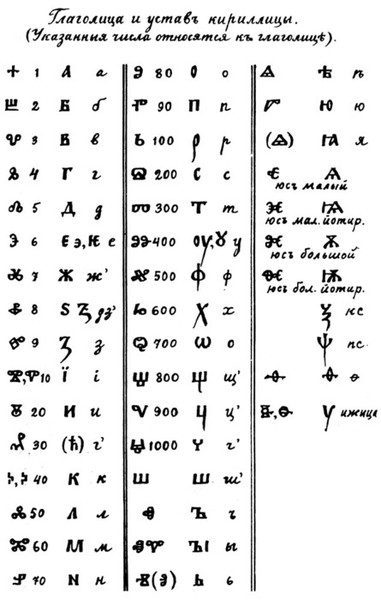 Глаголица и уставъ кириллицы.
(Указанныя числа относятся къ глаголицѣ).
Ⰰ 1 А а
Ⰱ 2 Б б
Ⰲ 3 В в
Ⰳ 4 Г г
Ⰴ 5 Д д
Ⰵ 6 Є э, Ѥ е
Ⰶ 7 Ж ж'
Ⰷ 8 Ѕ Ꙃ дз'
Ⰸ 9 З з
Ⰺ, Ⰹ 10 Ї і
Ⰻ 20 И и
Ⰼ 30 (ћ) г'
Ⰽ 40 К к
Ⰾ 50 Л л
Ⰿ 60 М м
Ⱀ 70 N н
Ⱁ 80 О о
Ⱂ 90 П п
Ⱃ 100 Р р
Ⱄ 200 С с
Ⱅ 300 Т т
Ⱆ 400 ОУ, Ꙋ у
Ⱇ 500 Ф ф
Ⱈ 600 Х х
Ⱉ 700 Ѡ о
Ⱋ 800 Щ щ'
Ⱌ 900 Ц ц'
Ⱍ 1000 Ч г'
Ⱎ Ш ш'
Ⱏ Ъ ъ
ⰟⰉ ЪІ ы
Ⱐ (Э) Ь ь
Ⱑ Ѣ ѣ
Ⱓ Ю ю
(Ⱑ) Ꙗ я
Ⱔ Ѧ
юсъ малый
Ⱗ Ѩ
юсъ мал. йотир.
Ⱘ Ѫ
юсъ большой
Ⱙ Ѭ
юсъ бол. йотир.
Ѯ кс
Ѱ пс
Ⱚ Ѳ ѳ
Ⱛ Ѵ ижица